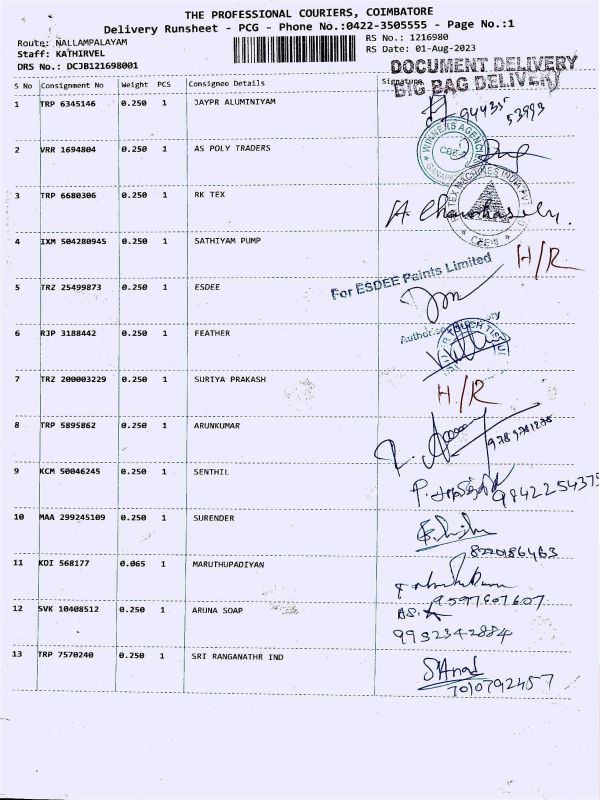 THE PROFESSIONAL COURIERS, COIMBATORE
Delivery Runsheet - PCG - Phone No.:0422-3505555 - Page No.:1
Route: NALLAMPALAYAM
Staff: KATHIRVEL
DRS No.: DCJB121698001
RS No.: 1216980
RS Date: 01-Aug-2023
DOCUMENT DELIVERY
BIG BAG DELIVERY
S No Consignment No Weight PCS Consignee Details Signature
1 TRP 6345146 0.250 1 JAYPR ALUMINIYAM
94435
53993
2 VRR 1694804 0.250 1 AS POLY TRADERS
WINNERS AGENCIES
3 TRP 6680306 0.250 1 RK TEX
TEX MACHINES INDIA PVT
4 IXM 504280945 0.250 1 SATHIYAM PUMP
H/R
5 TRZ 25499873 0.250 1 ESDEE
For ESDEE Paints Limited
6 RJP 3188442 0.250 1 FEATHER
7 TRZ 200003229 0.250 1 SURIYA PRAKASH
H/R
8 TRP 5895862 0.250 1 ARUNKUMAR
9 KCM 50046245 0.250 1 SENTHIL
10 MAA 299245109 0.250 1 SURENDER
8220186463
11 KDI 568177 0.065 1 MARUTHUPADIYAN
9597607607
12 SVK 10408512 0.250 1 ARUNA SOAP
9952342884
13 TRP 7570240 0.250 1 SRI RANGANATHR IND
S.Anad
7010792457